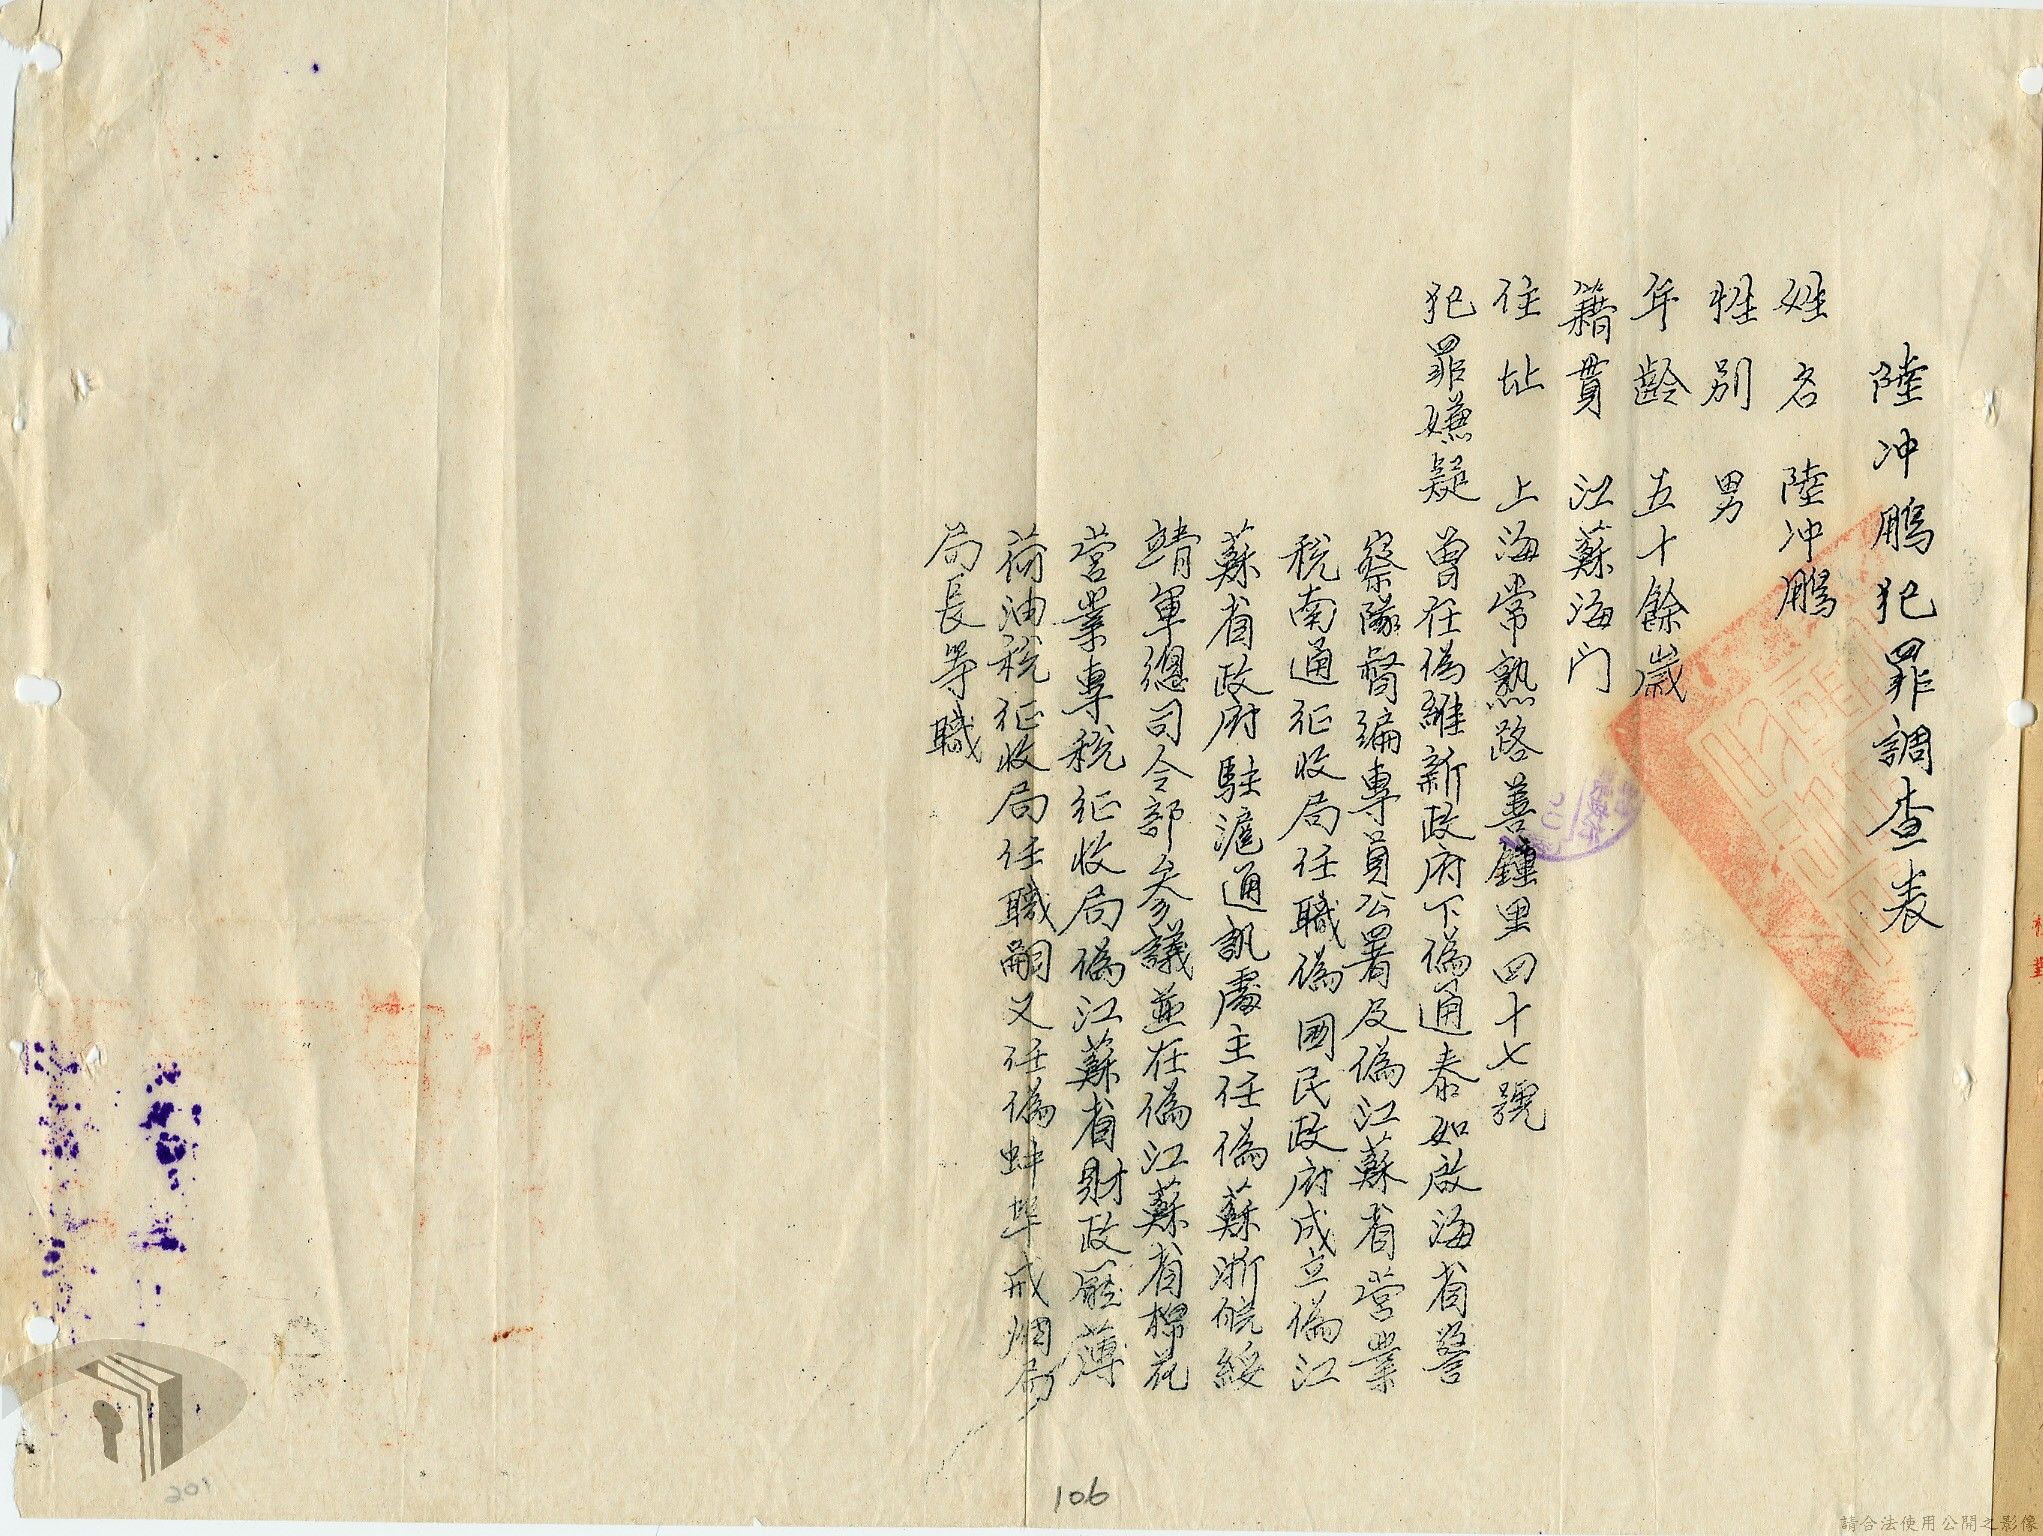 陸冲鵬犯罪調查表
姓名 陸冲鵬
性別 男
年齡 五十餘歲
籍貫 江蘇海门
住址 上海常熟路善鐘里四十七號
犯罪嫌疑 曾任偽維新政府下偽通泰如啟海省警
察隊督編專員公署及偽江蘇省营業
税南通征收局任職偽國民政府成立偽江
蘇省政府駐滬通訊處主任偽蘇浙皖綏
靖軍總司令部參議並在偽江蘇省棉花
营業專税征收局偽江蘇省財政廳薄
荷油税征收局任職嗣又任偽蚌埠戒烟局
局長等職
106
201
請合法使用公開之影像